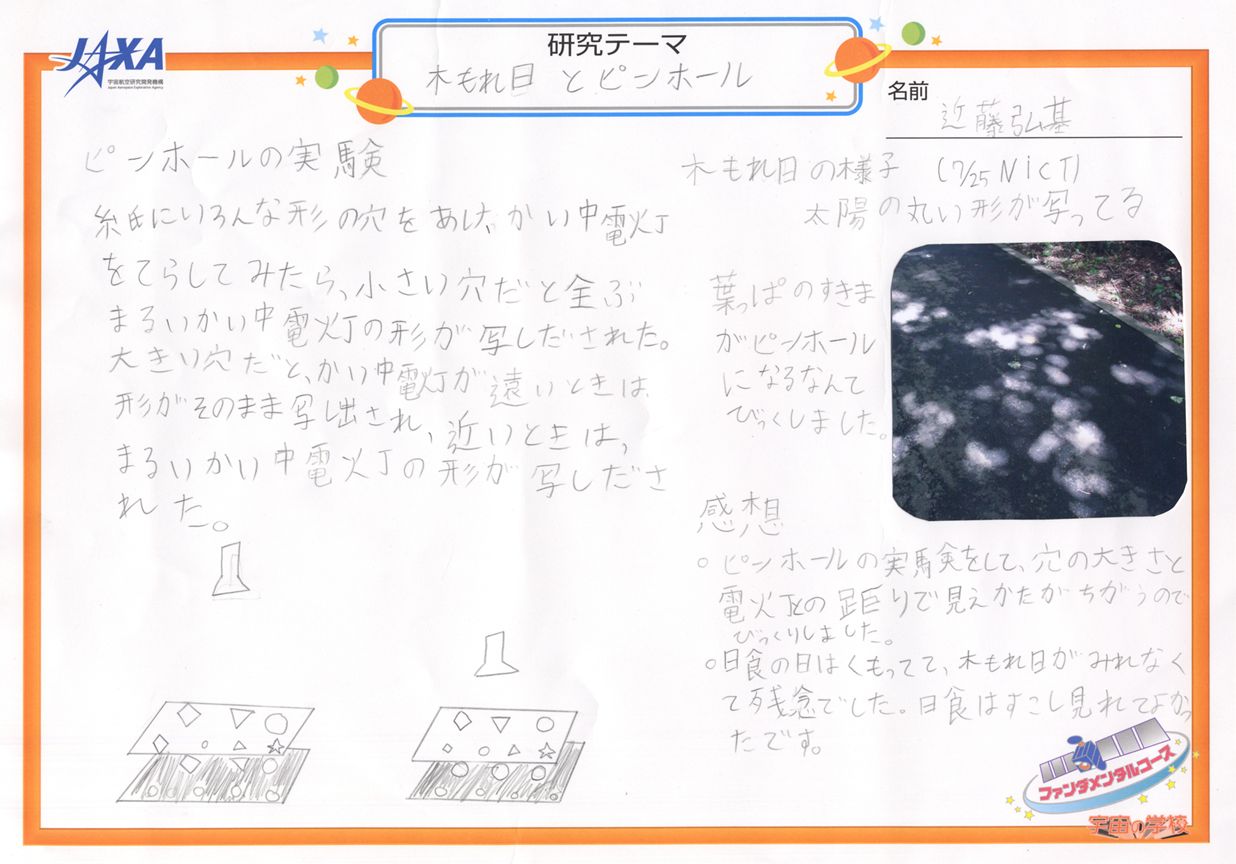 JAXA
宇宙航空研究開発機構
Japan Aerospace Exploration Agency
研究テーマ
木もれ日 と ピンホール
名前
近藤弘基
ピンホールの実験
紙にいろんな形の穴をあけ、かい中電灯
をてらしてみたら、小さい穴だと全ぶ
まるいかい中電灯の形が写しだされた。
大きい穴だと、かい中電灯が遠いときは、
形がそのまま写し出され、近いときは、
まるいかい中電灯の形が写しださ
れた。
木もれ日の様子 (7/25 NiCT)
太陽の丸い形が写ってる
葉っぱのすきま
がピンホール
になるなんて
びっくしました。
感想
○ピンホールの実験をして、穴の大きさと
電灯との距りで見えかたがちがうので
びっくりしました。
○日食の日はくもってて、木もれ日がみれなく
て残念でした。日食はすこし見れてよかっ
たです。
ファンダメンタルコース
宇宙の学校